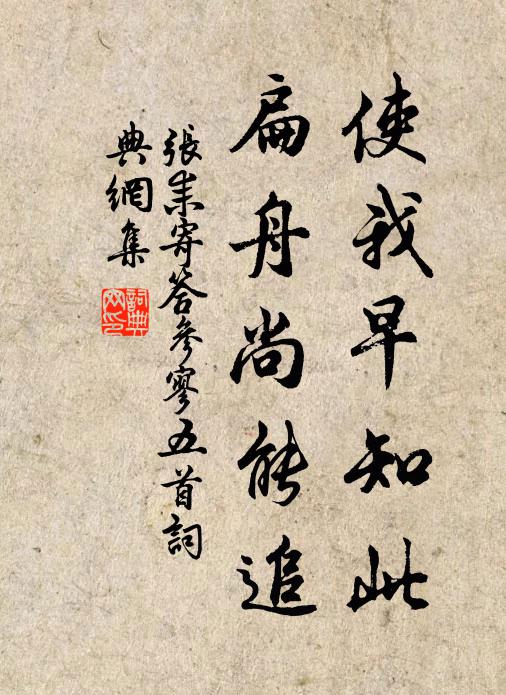 使我早知此
扁舟尚能追
張耒寄答參寥五首詞
典網集
詞典網印